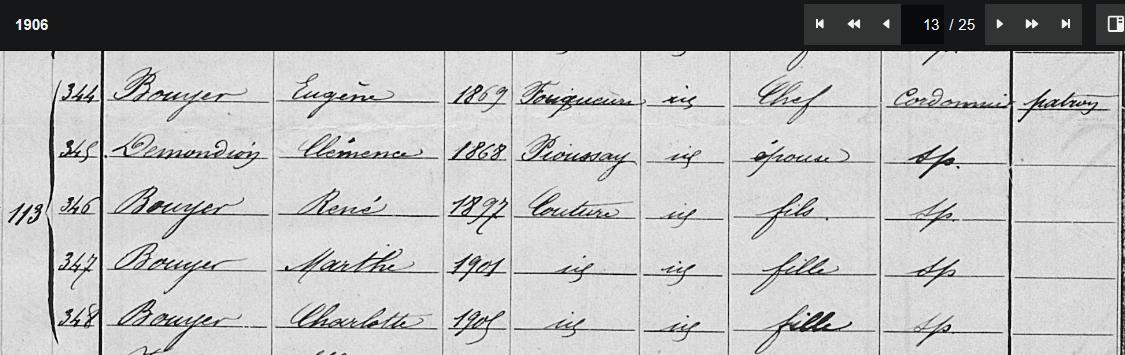 1906
13 / 25
344 Bouyer Eugène 1869 Fouqueure id Chef Cordonnier patron
345 Demondion Clémence 1868 Pioussay id épouse sp.
113 346 Bouyer René 1897 Couture id fils. sp.
347 Bouyer Marthe 1901 id id fille sp
348 Bouyer Charlotte 1905 id id fille sp.